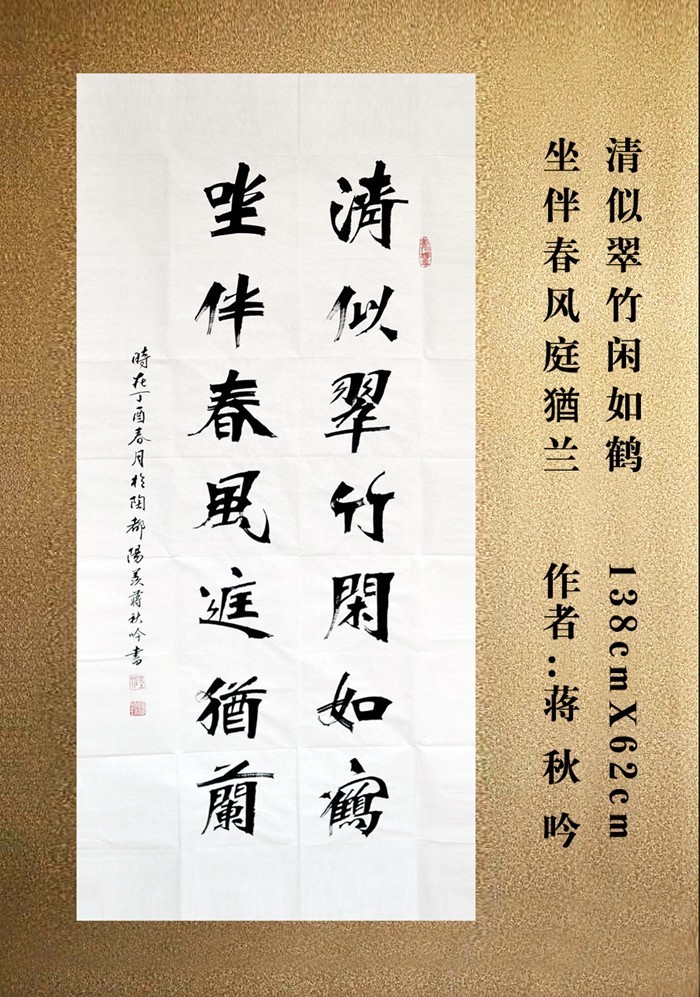 清似翠竹闲如鹤
坐伴春风庭猶兰
138cmX62cm
作者:蒋秋吟
清似翠竹閑如鶴
坐伴春風庭猶蘭
時在丁酉春月於陶都陽羨蔣秋吟書